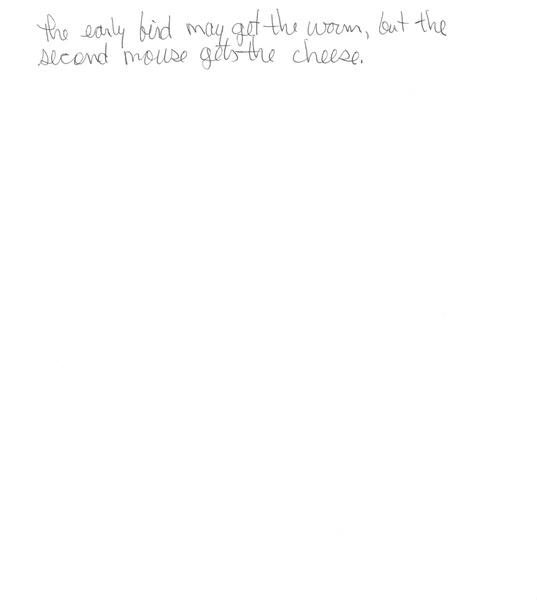 the early bird may get the worm, but the
second mouse gets the cheese.